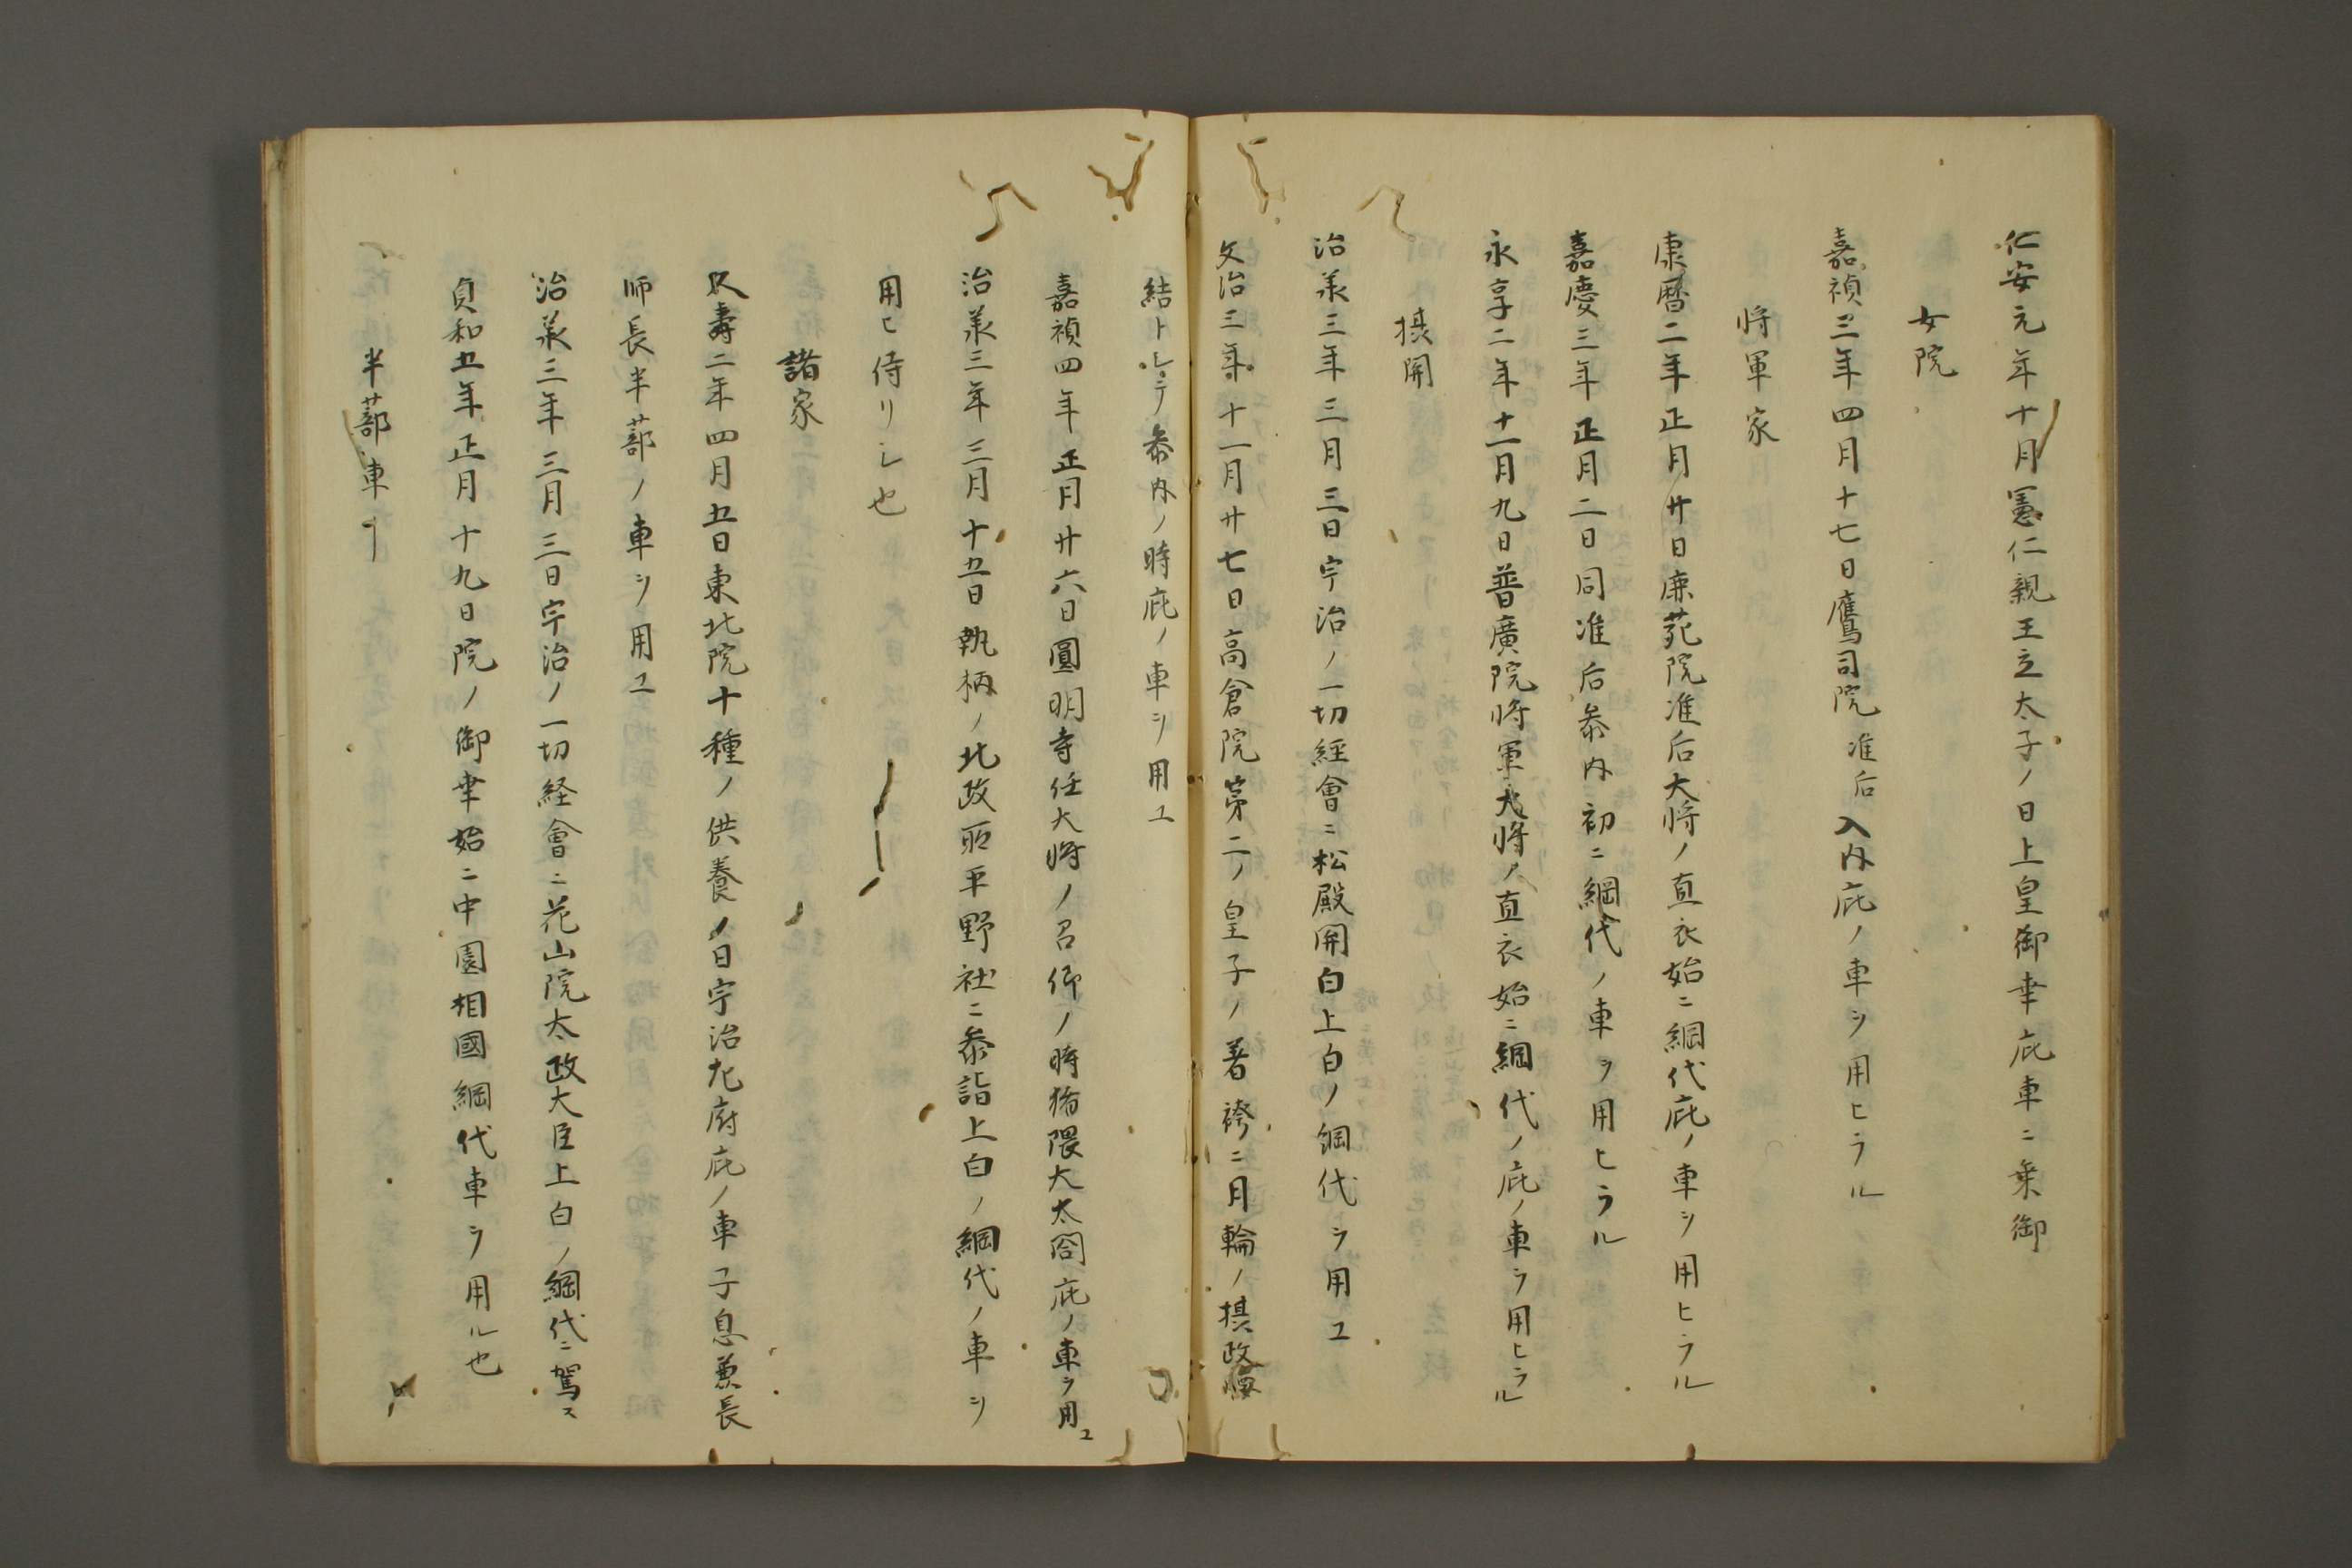 仁安元年十月憲仁親王立太子ノ日上皇御幸庇車ニ乗御
女院
嘉禎三年四月十七日鷹司院准后入内庇ノ車ヲ用ヒラル
将軍家
康暦二年正月廿日鹿苑院准后大将ノ直衣始ニ網代庇ノ車ヲ用ヒラル
嘉慶三年正月二日同准后参内初ニ網代ノ車ヲ用ヒラル
永享二年十一月九日普廣院将軍大将ノ直衣始ニ網代ノ庇ノ車ヲ用ヒラル
摂関
治承三年三月三日宇治ノ一切經會ニ松殿関白上白ノ網代ヲ用ユ
文治三年十一月廿七日高倉院第二ノ皇子ノ着袴ニ月輪ノ摂政
結トシテ参内ノ時庇ノ車ヲ用ユ
嘉禎四年正月廿六日圓明寺任大将ノ召仰ノ時猪隈大太閤庇ノ車ヲ用ユ
治承三年三月十五日執柄ノ北政所平野社ニ参詣上白ノ網代ノ車ヲ
用ヒ侍リシ也
諸家
久壽二年四月五日東北院十種ノ供養ノ日宇治左府庇ノ車子息兼長
師長半蔀ノ車ヲ用ユ
治承三年三月三日宇治ノ一切経會ニ花山院太政大臣上白ノ網代ニ駕ス
貞和五年正月十九日院ノ御幸始ニ中園相國網代車ヲ用ル也
半蔀車ノ